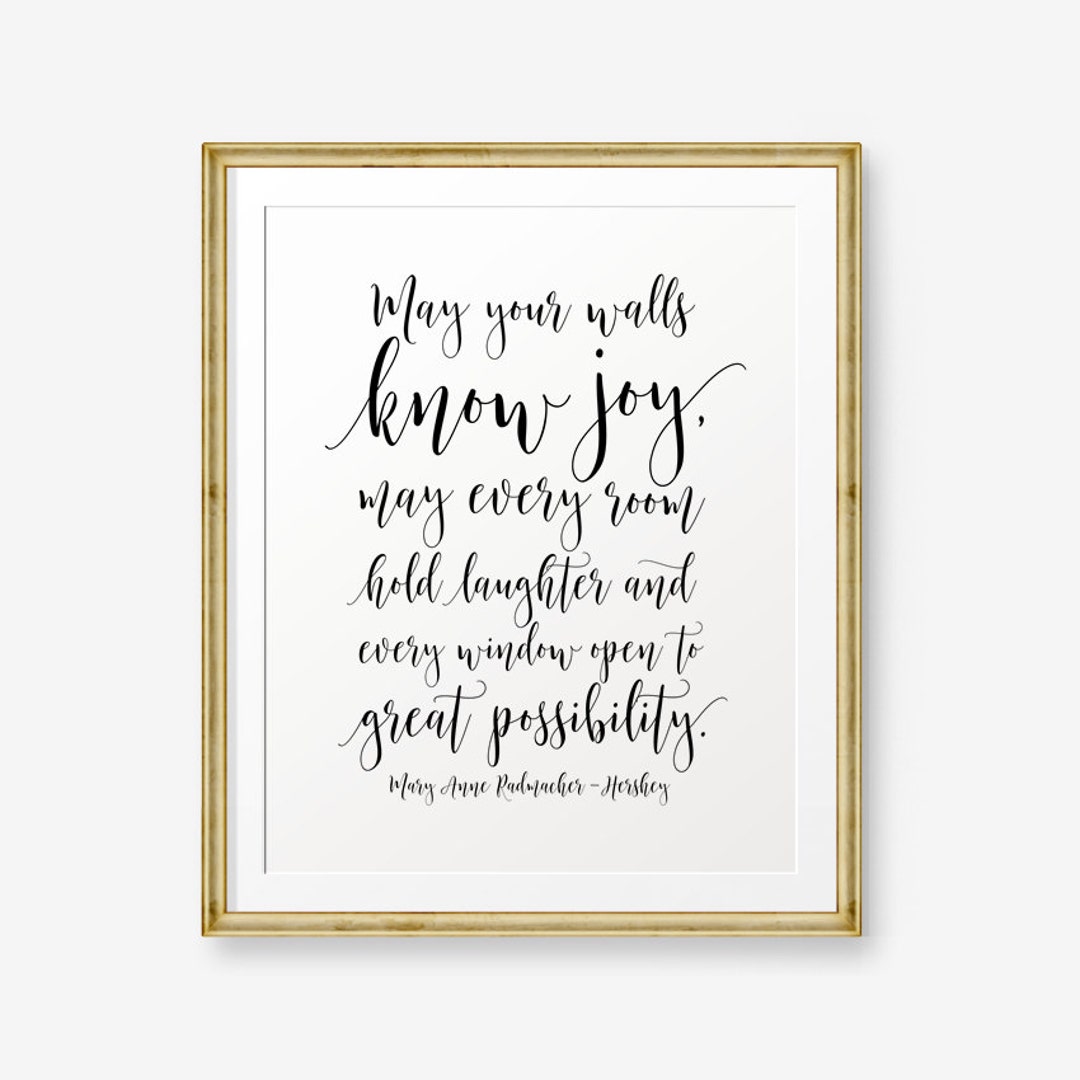 May your walls
know joy,
may every room
hold laughter and
every window open to
great possibility.
Mary Anne Radmacher - Hershey